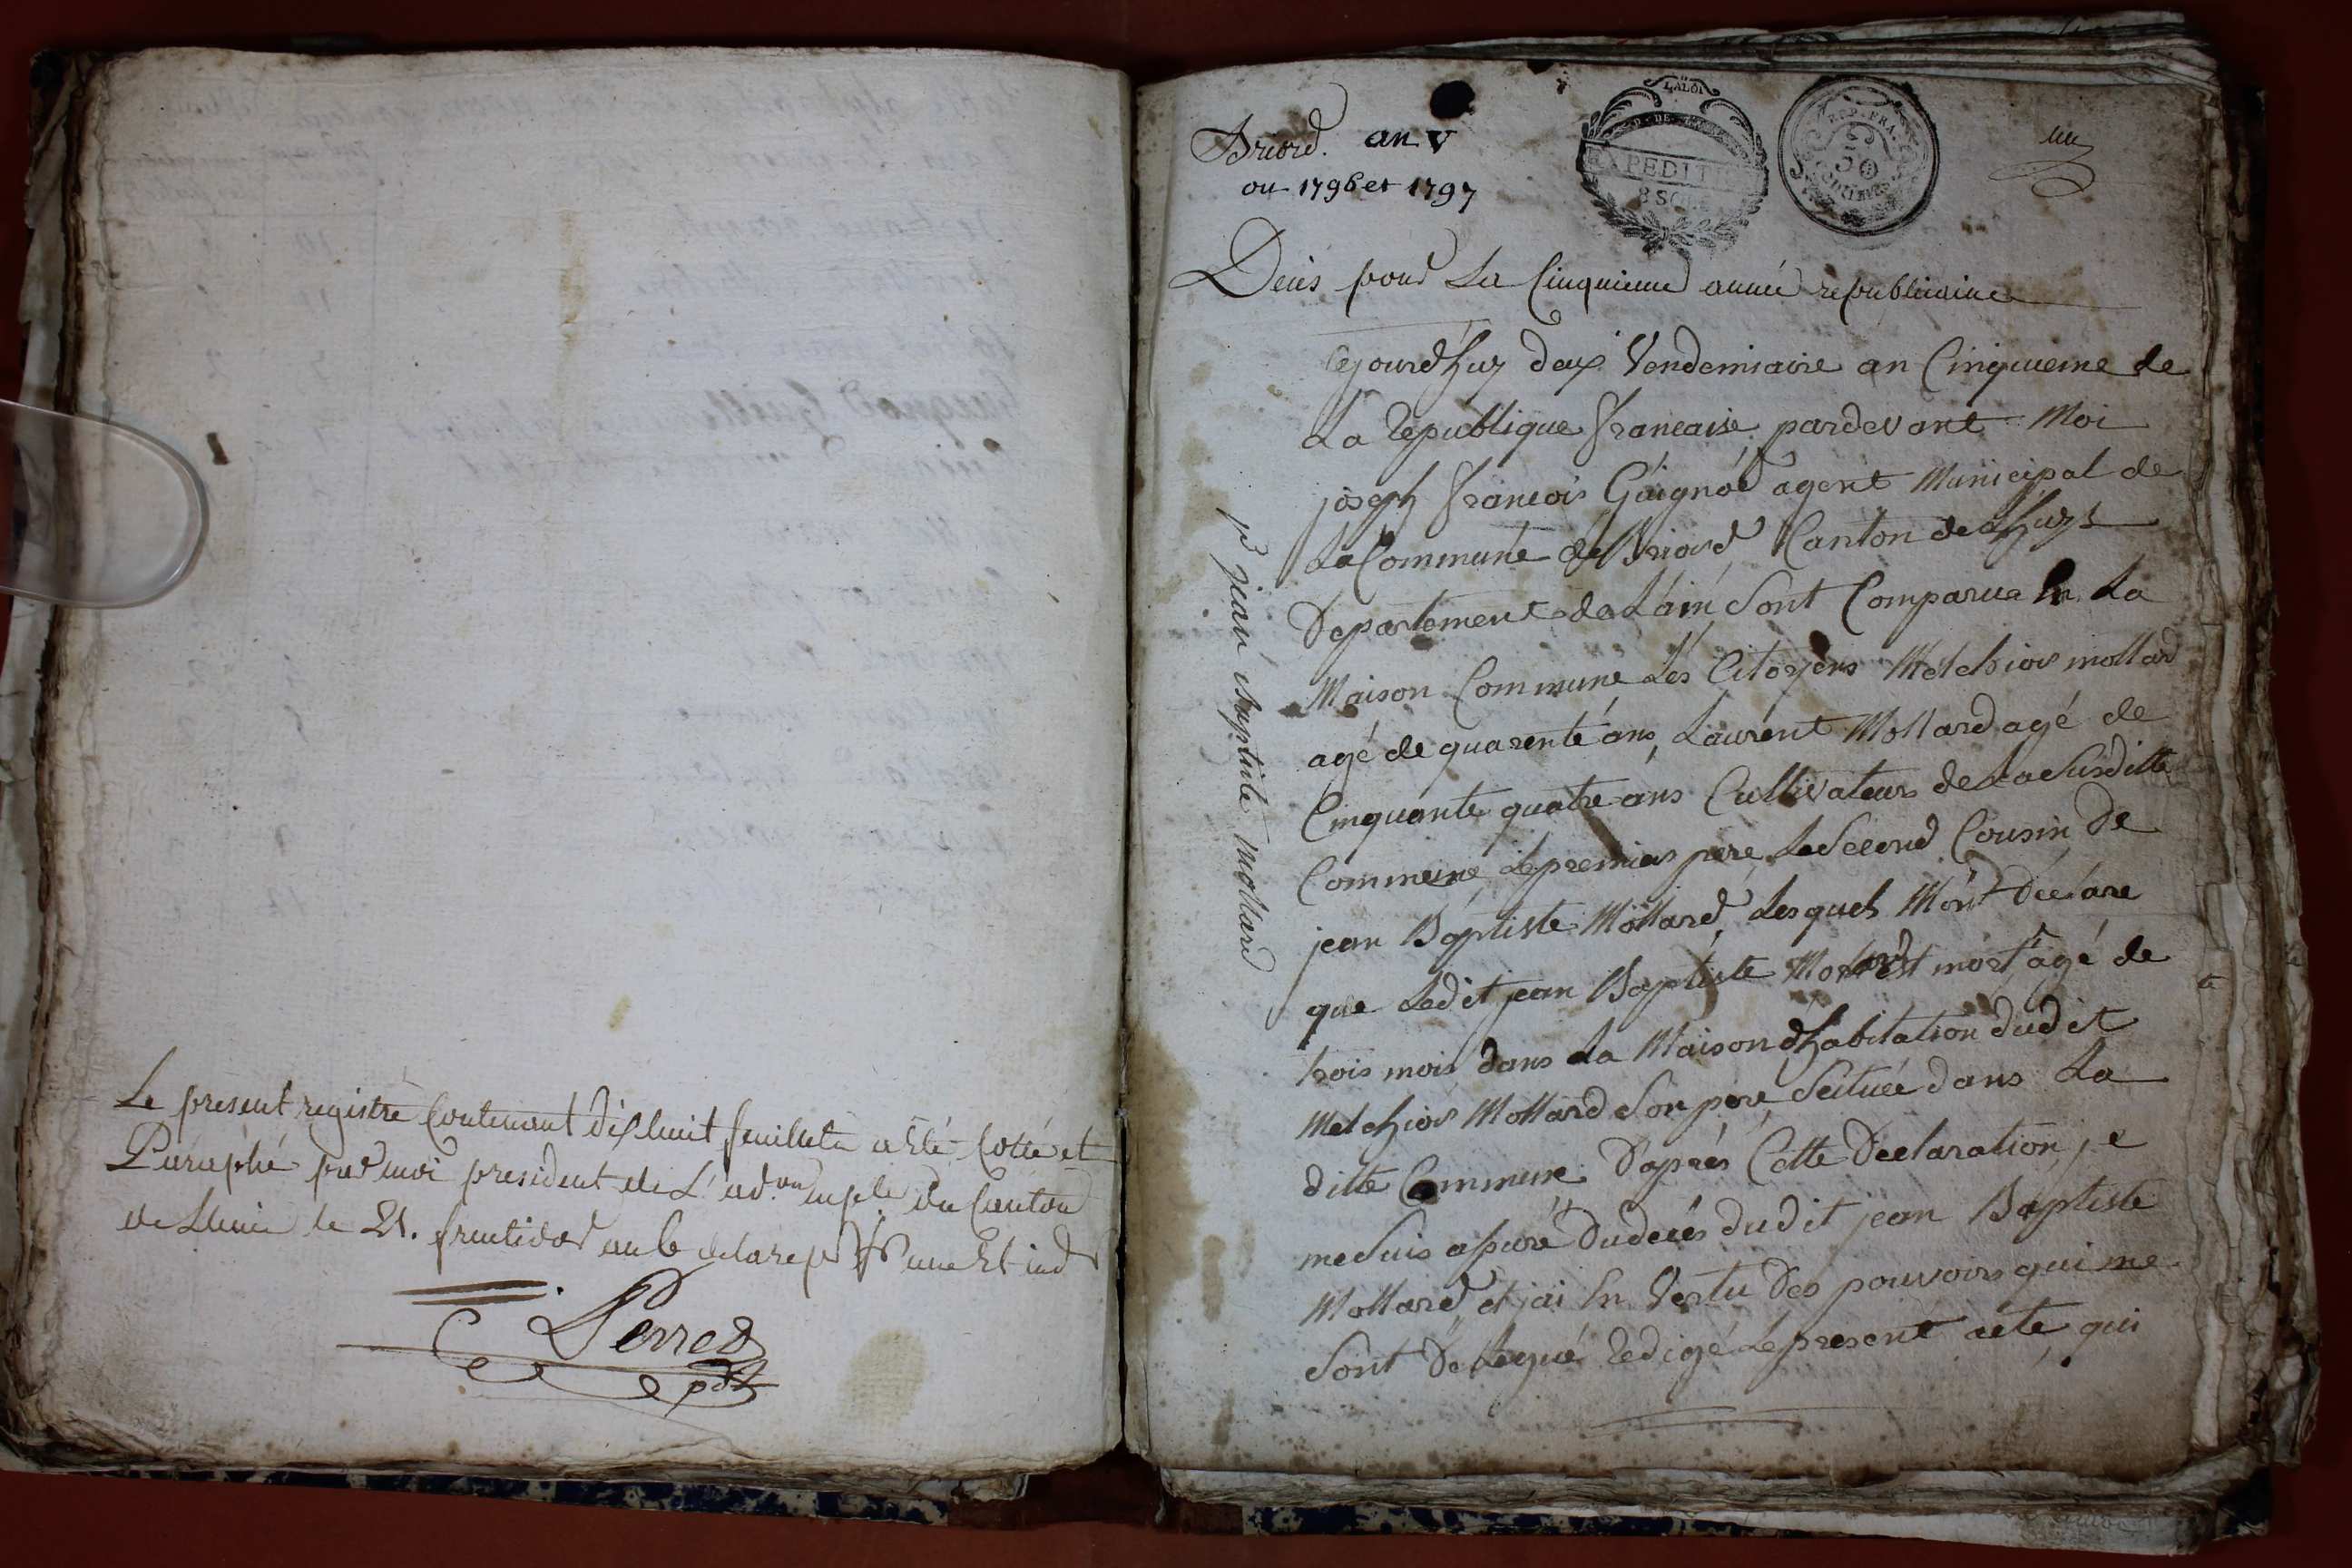 Le present registre Contenant dix huit feuillets a Eté Cotté et
Paraphé par moi president de L'ad.on mple du Canton
de Lhuis le 21. fructidor an 6 de la rep fr une Et ind
Perret
pdt
Briord. an V
ou 1796 et 1797
LA LOI
EXPEDITION
8 SOLS
REP. FRA.
50
CENTIMES
un
Decès pour La Cinquieme année republicaine
Cejourd'huy deux Vendemiaire an Cinquieme de
La Republique francaise pardevant Moi
joseph francois Guignod agent Municipal de
La Commune de Briord Canton de Lhuys
Departement de L'ain Sont Comparus En La
Maison Commune Les Citoyens Melchior mollard
agé de quarente ans, Laurent Mollard agé de
Cinquante quatre ans Cultivateurs de La Susditte
Commune, Le premier pere, Le Second Cousin De
jean Baptiste Mollard, Lesquels M'ont Déclaré
que Ledit jean Baptiste Mollard Est mort agé de
trois mois dans La Maison d'habitation dudit
Melchior Mollard Son pere, Scituée dans La
ditte Commune. D'aprés Cette Declaration, je
me Suis assuré Du decés dudit jean Baptiste
Mollard, et j'ai En Vertu Des pouvoirs qui me
Sont Delegué Redigé Le present acte, qui
jean Baptiste mollard